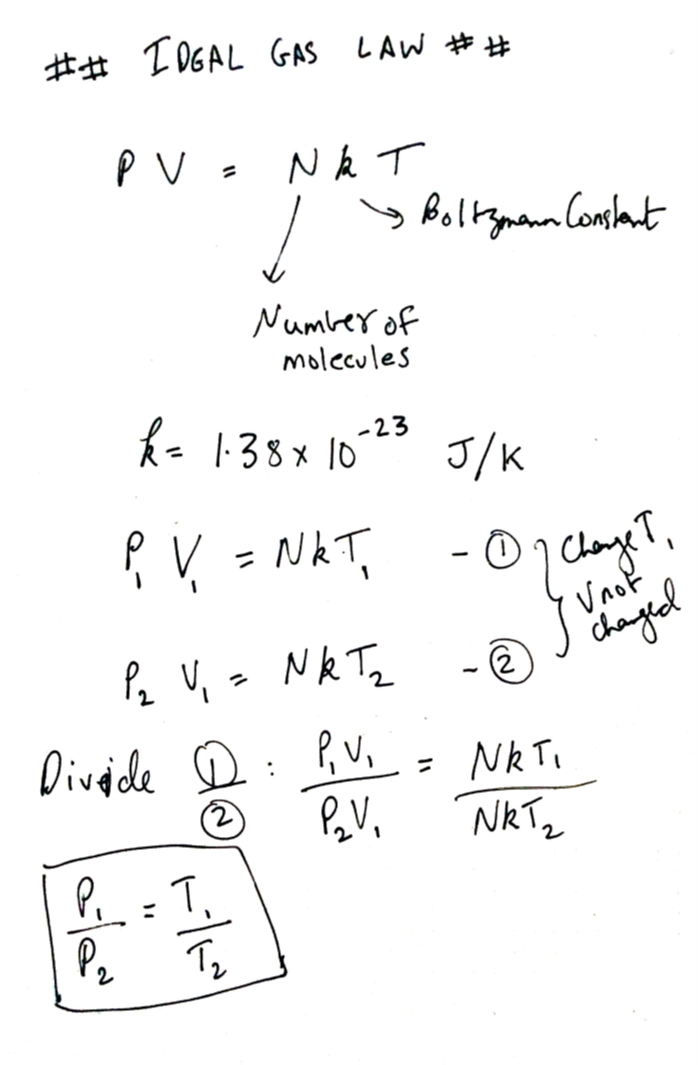 ## IDEAL GAS LAW ##
PV = NkT
Boltzmann Constant
Number of
molecules
k = 1.38 x 10^-23 J/K
P₁ V₁ = NkT₁ - ①
Change T,
V not
changed
P₂ V₁ = NkT₂ - ②
Divide ①/② : P₁V₁/P₂V₁ = NkT₁/NkT₂
P₁/P₂ = T₁/T₂